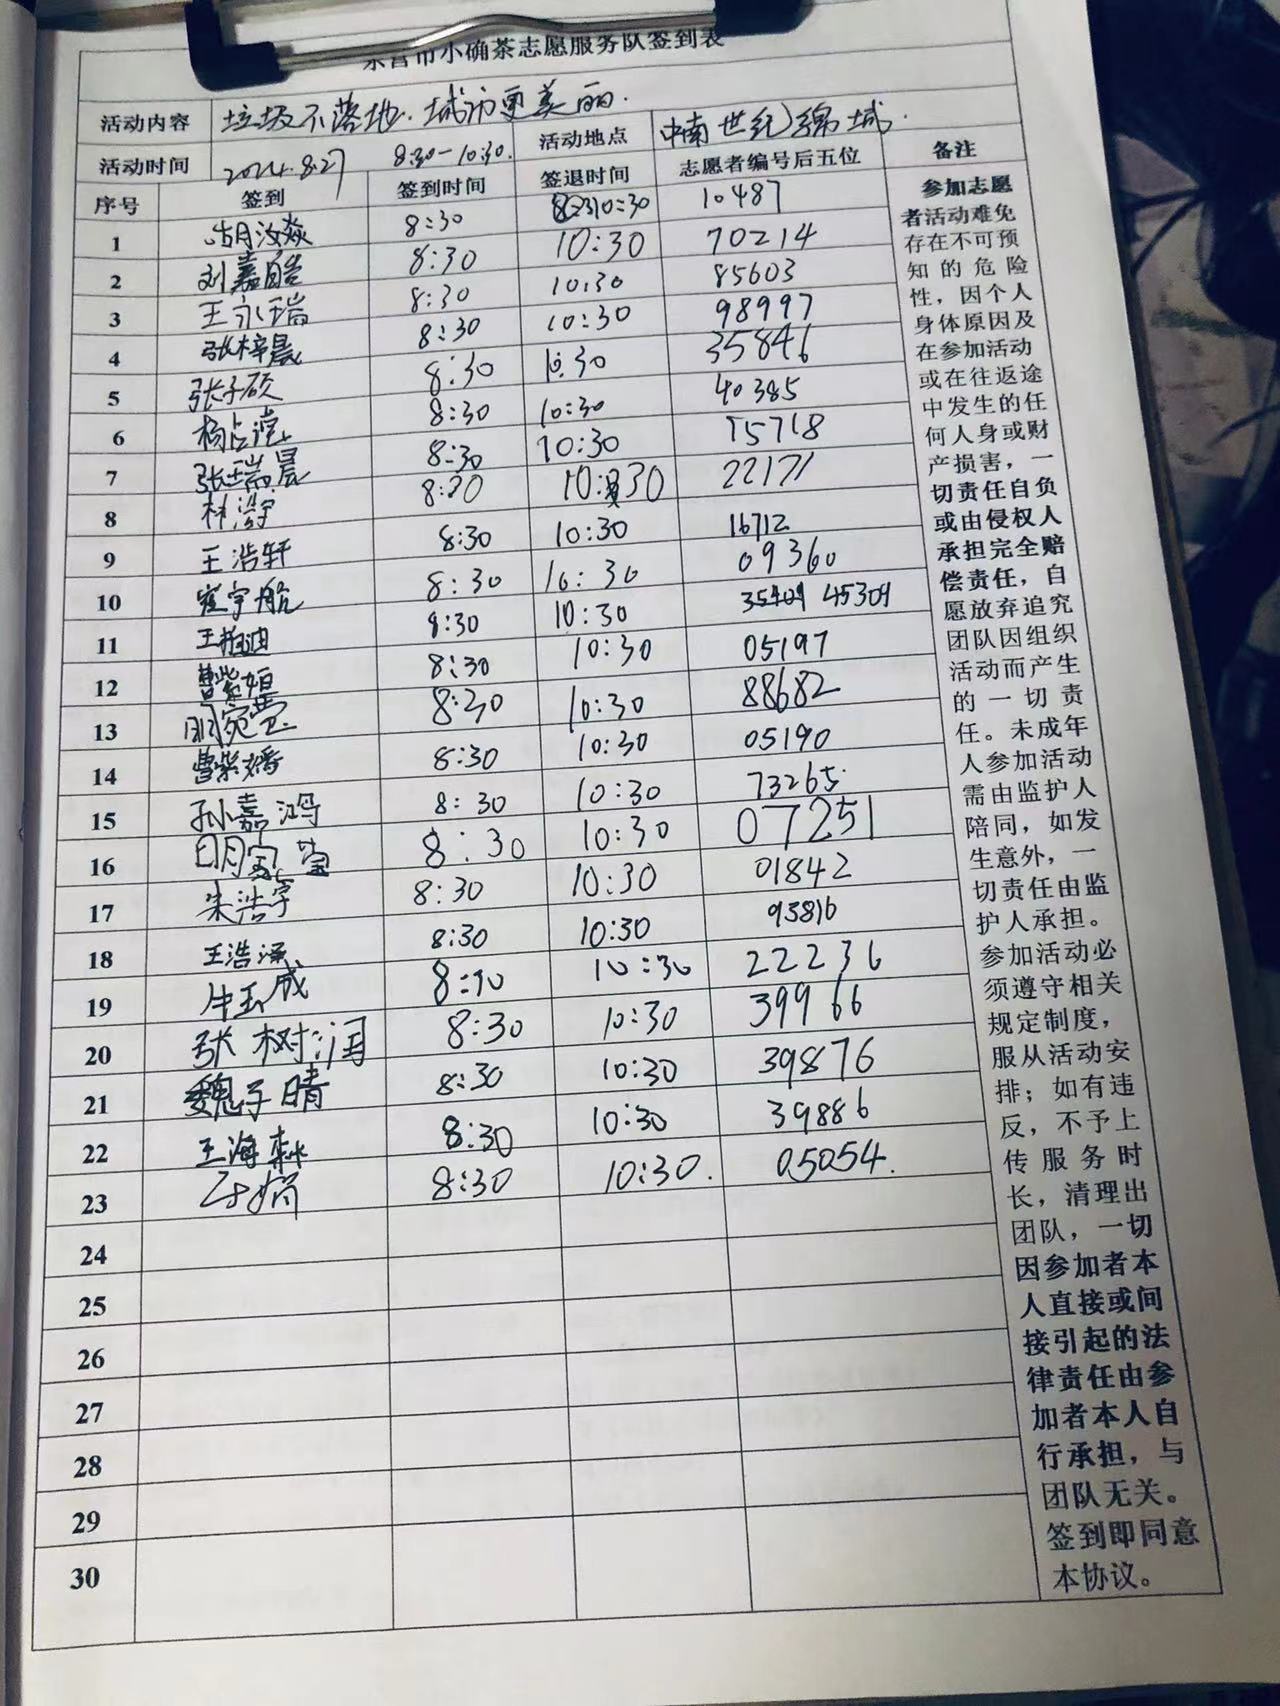 东营市小确茶志愿服务队签到表
活动内容 垃圾不落地.城市更美丽. 活动地点 中南世纪锦城.
活动时间 2024.8.27 8:30-10:30.
序号 签到 签到时间 签退时间 志愿者编号后五位 备注
1 胡汝焱 8:30 10:30 10487
2 刘嘉皓 8:30 10:30 70214
3 王永瑞 8:30 10:30 85603
4 张梓晨 8:30 10:30 98997
5 张子硕 8:30 10:30 35846
6 杨占滢 8:30 10:30 40385
7 张瑞晨 8:30 10:30 15718
8 林浩宇 8:30 10:30 22171
9 王浩轩 8:30 10:30 16712
10 崔宇航 8:30 10:30 09360
11 王柏迪 8:30 10:30 45309
12 曹紫妲 8:30 10:30 05197
13 明宛萱 8:30 10:30 88682
14 曹紫嫣 8:30 10:30 05190
15 孙嘉鸿 8:30 10:30 73265
16 明家莹 8:30 10:30 07251
17 朱浩宇 8:30 10:30 01842
18 王浩涵 8:30 10:30 93816
19 牛玉成 8:30 10:30 22236
20 张树润 8:30 10:30 39966
21 魏子晴 8:30 10:30 39876
22 王海霖 8:30 10:30 39886
23 8:30 10:30. 05054.
24
25
26
27
28
29
30
参加志愿
者活动难免
存在不可预
知的危险
性，因个人
身体原因及
在参加活动
或在往返途
中发生的任
何人身或财
产损害，一
切责任自负
或由侵权人
承担完全赔
偿责任，自
愿放弃追究
团队因组织
活动而产生
的一切责
任。未成年
人参加活动
需由监护人
陪同，如发
生意外，一
切责任由监
护人承担。
参加活动必
须遵守相关
规定制度，
服从活动安
排；如有违
反，不予上
传服务时
长，清理出
团队，一切
因参加者本
人直接或间
接引起的法
律责任由参
加者本人自
行承担，与
团队无关。
签到即同意
本协议。